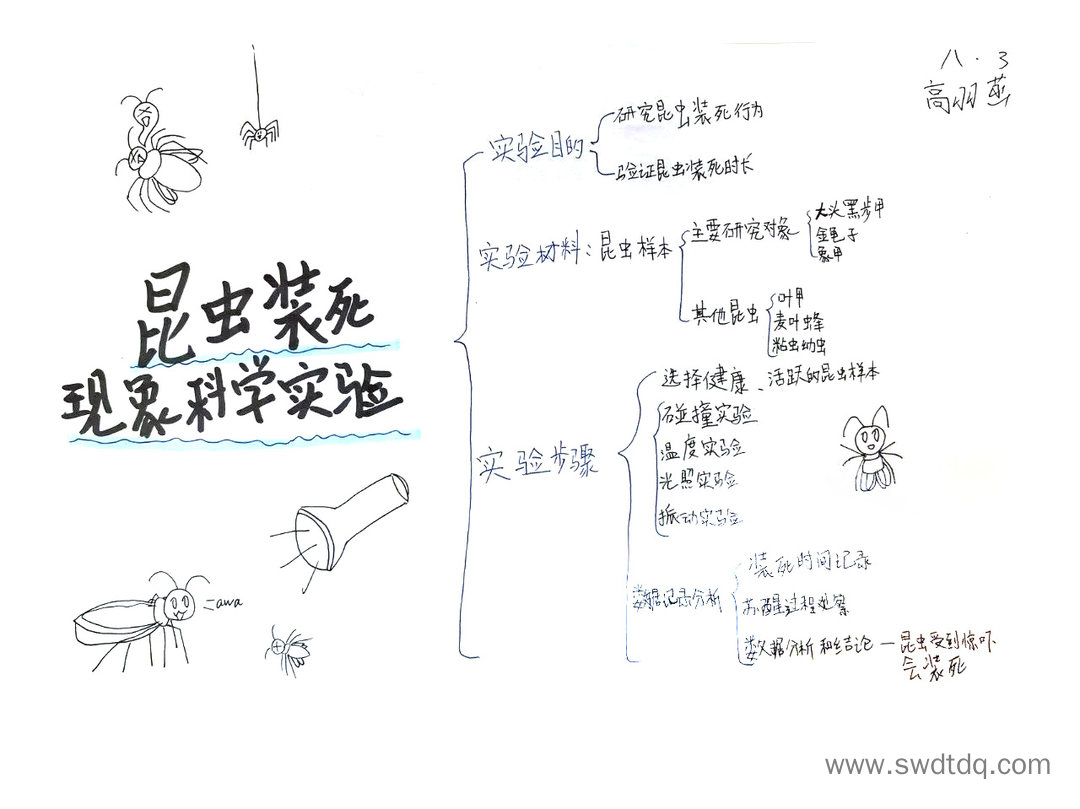 八.3
高羽燕
昆虫装死
现象科学实验
实验目的
研究昆虫装死行为
验证昆虫装死时长
实验材料：昆虫样本
主要研究对象
大头黑步甲
金龟子
象甲
其他昆虫
叶甲
麦叶蜂
粘虫幼虫
实验步骤
选择健康、活跃的昆虫样本
碰撞实验
温度实验
光照实验
振动实验
数据记录分析
装死时间记录
苏醒过程观察
数据分析和结论 — 昆虫受到惊吓
会装死
awa
www.swdtdq.com